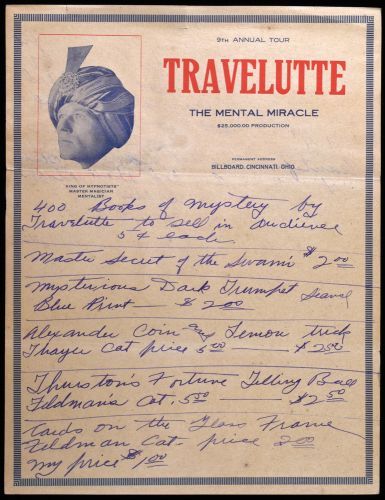 9TH ANNUAL TOUR
TRAVELUTTE
THE MENTAL MIRACLE
$25,000.00 PRODUCTION
PERMANENT ADDRESS
BILLBOARD, CINCINNATI, OHIO
"KING OF HYPNOTISTS"
MASTER MAGICIAN
MENTALIST
400 Books of mystery by
Travelutte to sell in audience
5¢ each.
Master Secret of the Swami $2.00
Mysterious Dark Trumpet Seance
Blue Print — $2.00
Alexander Coin Lemon trick
Thayer Cat price 5.00 — $2.50
Thurston's Fortune Telling Ball
Feldman's Cat. 5.50 — $2.50
Cards on the Glass Frame
Feldman Cat. price 2.00
My price $1.00